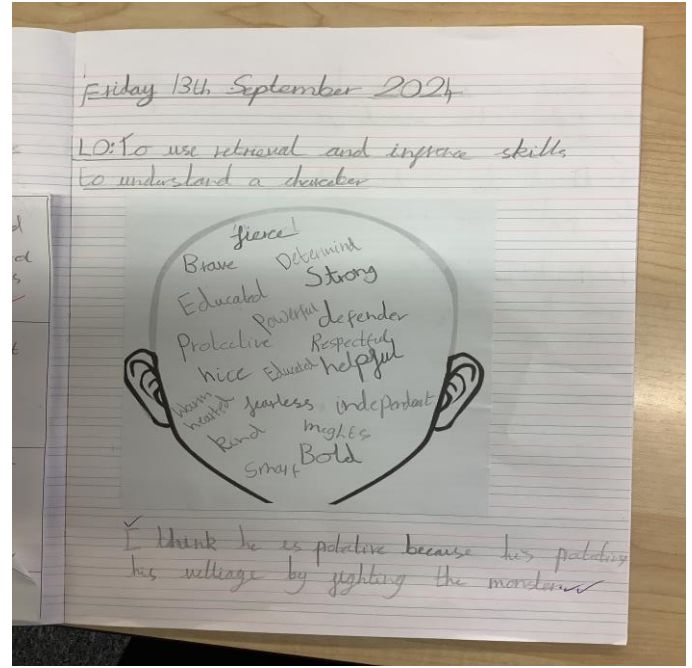 Friday 13th September 2024
LO: To use retrieval and infrence skills
to understand a charceber
fierce!
Brave Determind
Strong
Educated
Powerful defender
Protective Respectful
nice Educated helpful
Warm
hearted fearless independant
kind
Smart Bold
I think he is potative because his potating
his villiage by fighting the monster
d
d
s
t